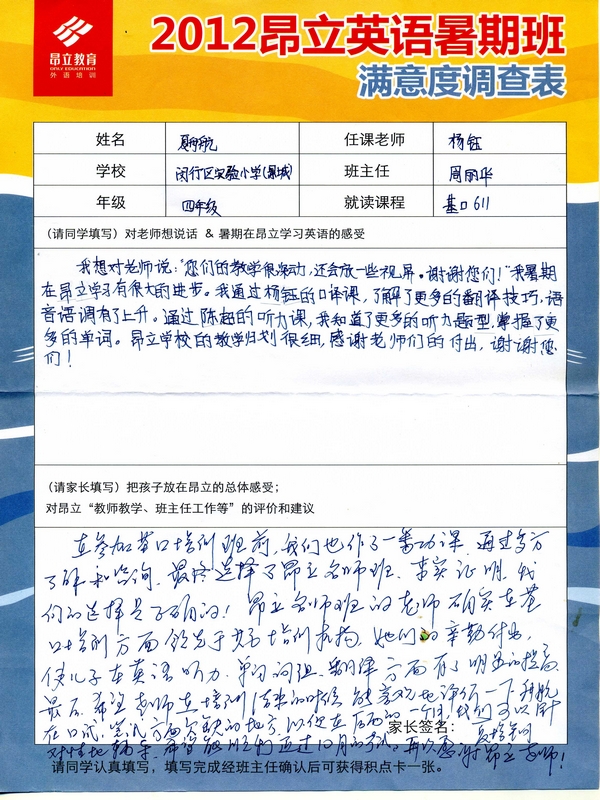 昂立教育
ONLY EDUCATION
外语培训
2012昂立英语暑期班
满意度调查表
姓名 航 任课老师 杨钰
学校 闵行区实验小学(景城) 班主任 周丽华
年级 四年级 就读课程 基口611
(请同学填写)对老师想说话 & 暑期在昂立学习英语的感受
我想对老师说:“您们的教学很生动,还会放一些视屏。谢谢您们!”我暑期
在昂立学习有很大的进步。我通过杨钰的口译课,了解了更多的翻译技巧,语
音语调有了上升。通过陈超的听力课,我知道了更多的听力题型,掌握了更
多的单词。昂立学校的教学计划很细,感谢老师们的付出,谢谢您
们!
(请家长填写)把孩子放在昂立的总体感受;
对昂立“教师教学、班主任工作等”的评价和建议
在参加基口培训班前,我们也作了一番功课,通过多方
了解和咨询,最终选择了昂立名师班,事实证明,我
们的选择是正确的!昂立名师班的老师确实在基
口培训方面领先于其他培训机构,她们的辛勤付出,
使儿子在英语听力、单词词组、翻译方面有了明显的提高
最后,希望老师在培训结束的时候能客观地评价一下
在口试、笔试方面欠缺的地方,以便在后面的一个月我们可以针
家长签名:
对性地辅导,希望能顺利通过10月的考试。再次感谢昂立老师!
请同学认真填写,填写完成经班主任确认后可获得积点卡一张。